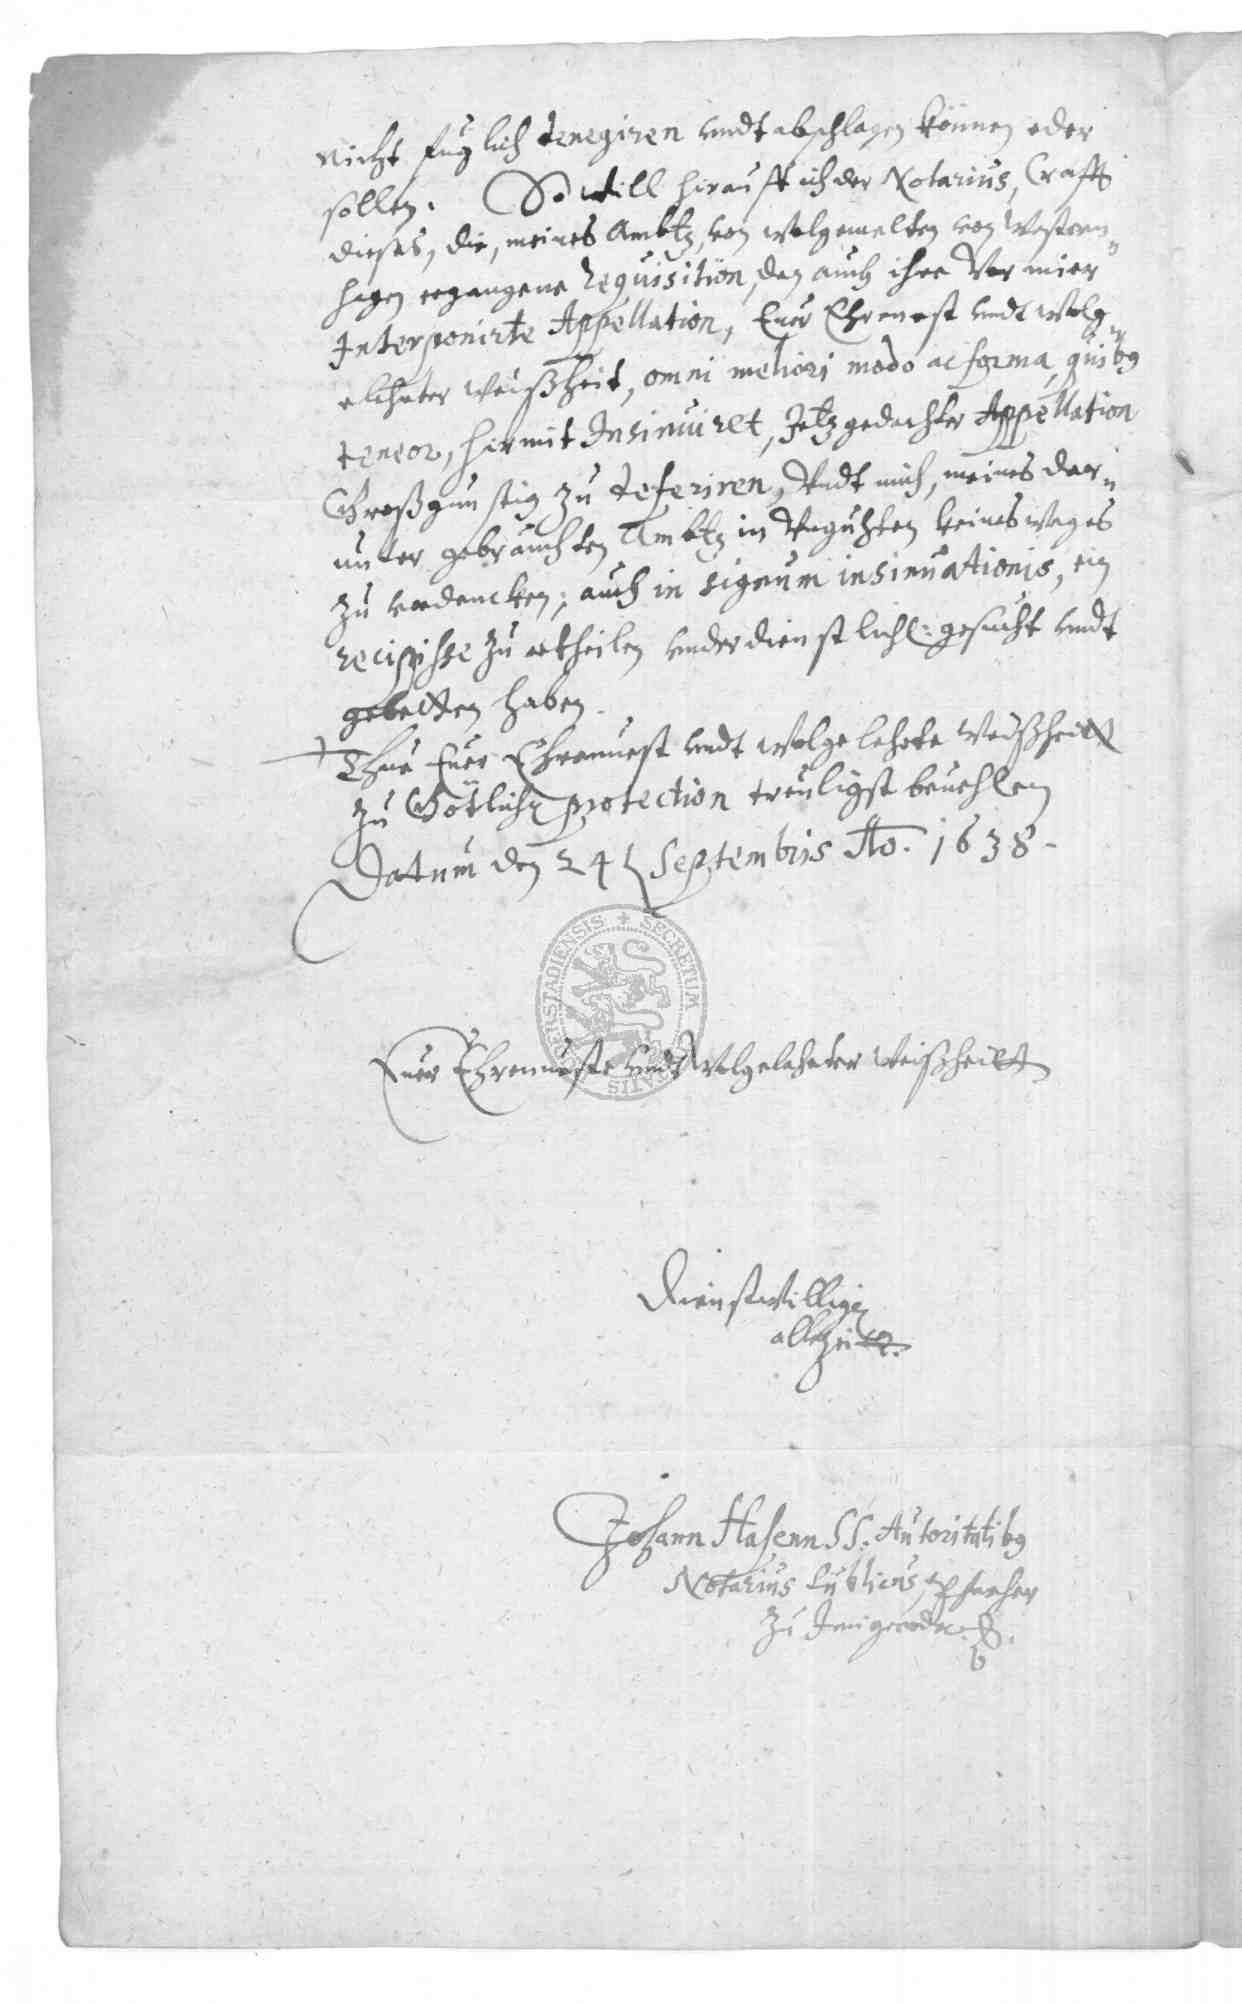 nicht fuglich denegiren undt abschlagen können oder
sollen. So will hirauff ich der Notarius, Crafft
dieses, die, meines Ambtz, von wolgemelten von Western„
hagen ergangene requisition, den auch ihre Vor mier
Interponirte Appellation, Euer Ehrnvest undt wolg„
elehrter Weißheit, omni meliori modo ac forma, quibus
teneor, hiermit Insinuiret, Jetzgedachter Appellation
Großgunstig zu deferiren, Undt mich, meines dar„
unter gebrauchten Ambtz in Unguhten keines weges
zu verdencken, auch in signum insinuationis, ein
recipisse zu ertheilen underdienstlichst gesucht undt
gebetten haben.
Thue Euer Ehrennvest undt wolgelehrte Weißheitt
zu Götlicher protection treuligst bevehlen
Datum den 24 Septembris Ao. 1638.
SECRETUM
Euer Ehrnnveste Undt Wolgelehrter Weißheitt
Dienstwilliger
allezeitt.
Johann Hasenn SS. Autoritatibus
Notarius Publicus, Pfarher
zu Imigerode.